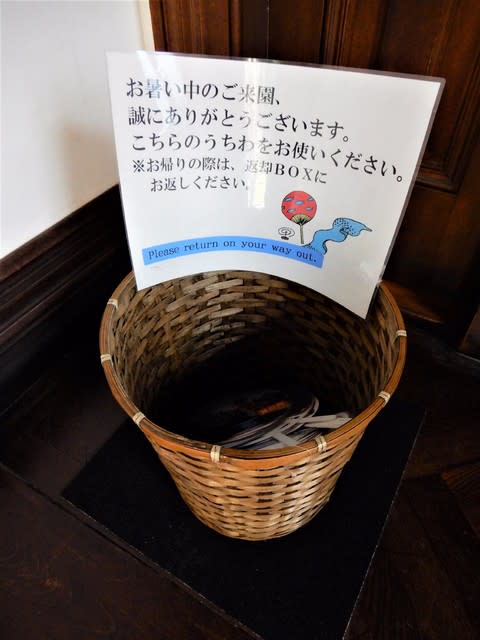 お暑い中のご来園、
誠にありがとうございます。
こちらのうちわをお使いください。
※お帰りの際は、返却BOXに
お返しください。
Please return on your way out.